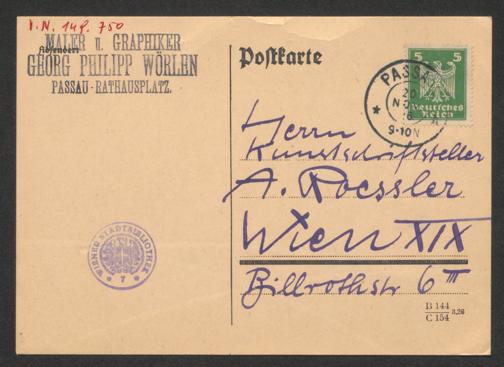 I.N. 149.750
Absender:
MALER u. GRAPHIKER
GEORG PHILIPP WÖRLEN
PASSAU-RATHAUSPLATZ.
Postkarte
PASSAU
20
NO
9-10N
5 5
Deutsches
Reich
Herrn
Kunstschriftsteller
A. Roessler
Wien XIX
Billrothstr 6 III
WIENER STADTBIBLIOTHEK
* 7 *
B 144
C 154
3,26